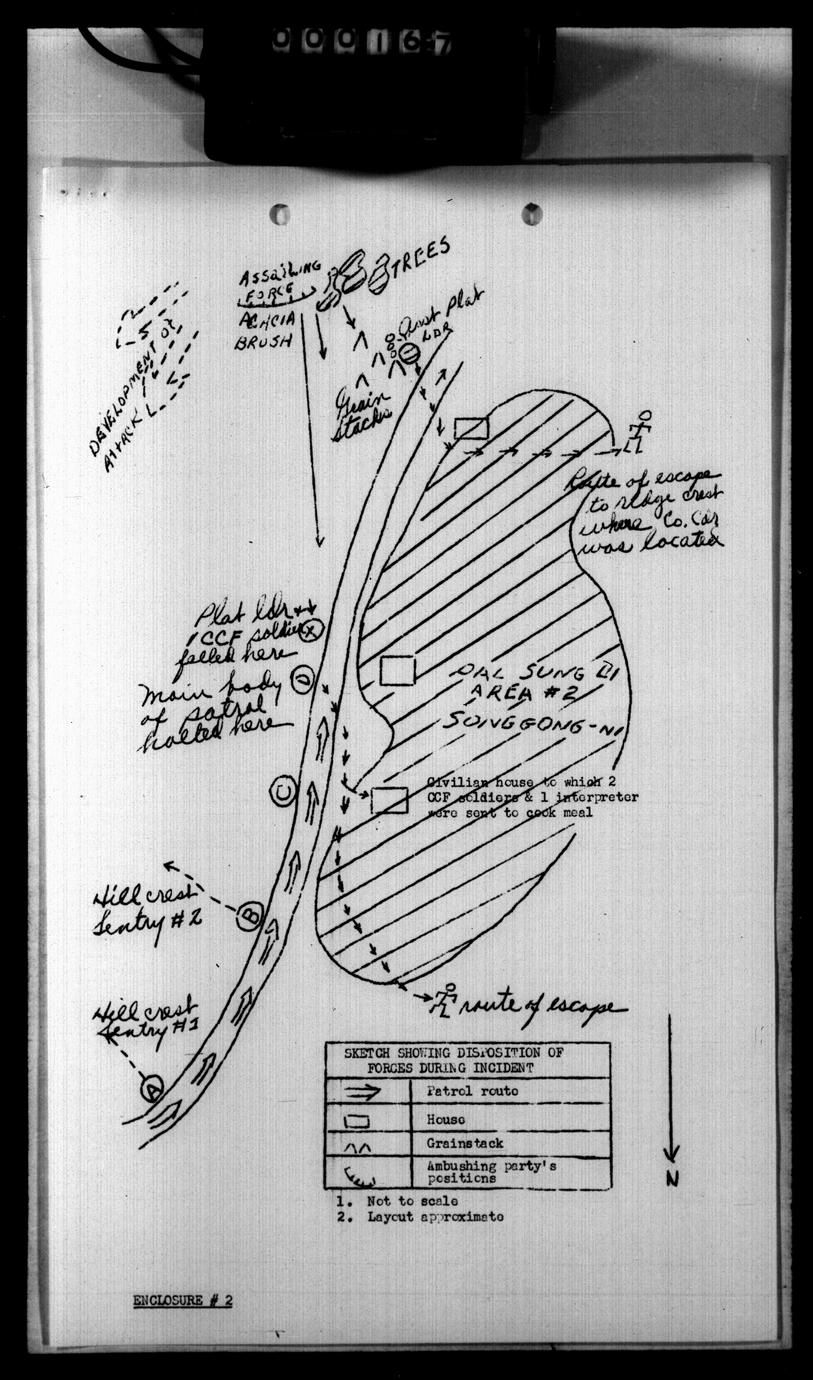 000167
ASSAILING
FORCE
ACACIA
BRUSH
TREES
Asst Plat
LDR
DEVELOPMENT OF
ATTACK
Grain
stacks
Route of escape
to ridge crest
where Co. Cdr
was located
Plat ldr
1 CCF soldier
felled here
X
D
Main body
of patrol
halted here
DAL SUNG
AREA #2
SONGGONG-NI
C
Civilian house to which 2
CCF soldiers & 1 interpreter
were sent to cook meal
Hill crest
Sentry #2
B
Hill crest
Sentry #1
A
route of escape
SKETCH SHOWING DISPOSITION OF
FORCES DURING INCIDENT
Patrol route
House
Grainstack
Ambushing party's
positions
1. Not to scale
2. Layout approximate
N
ENCLOSURE # 2